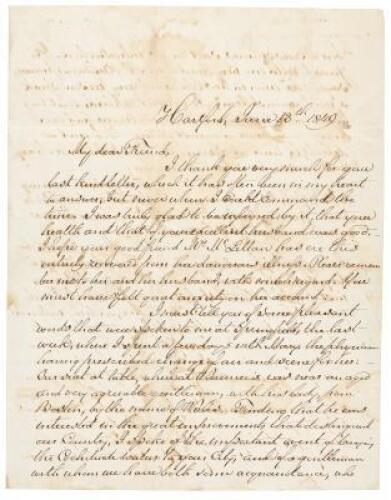 Hartford, June 18th. 1849.
My dear Friend,
I thank you very much for your
last kind letter, which it has often been in my heart
to answer, but never when I could command the
time. I was truly glad to be informed by it, that your
health and that of your excellent husband was good.
I hope your good friend Mrs. McLellan has ere this
entirely recovered from her dangerous illness. Please remem
ber me to her and her husband, with much regard. You
must have felt great anxiety on her account.
I must tell you of some pleasant
words that were spoken to me at Springfield the last
week, where I spent a few days with Mary, the physician
having prescribed change of air and scene for her.
Our seat at table, while at Warriner's, was near an aged
and very agreeable gentleman, with his lady, from
Boston, by the name of Finding that he was
interested in the great improvements that distinguish
our Country, I spoke of the important event of
the Cochituate water to your City, and of a gentleman
with whom we have both some acquaintance, who